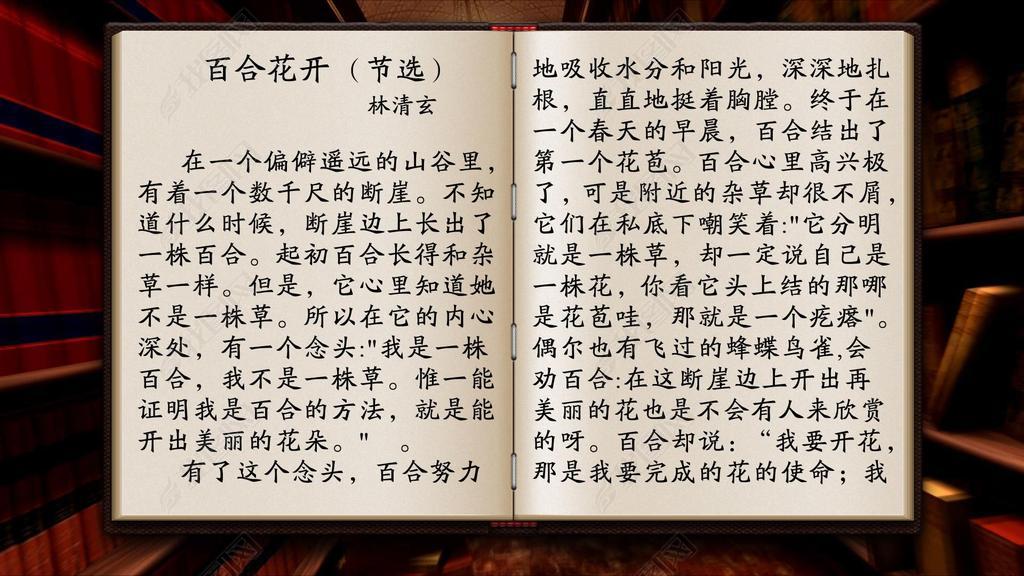 百合花开（节选）
林清玄
在一个偏僻遥远的山谷里，
有着一个数千尺的断崖。不知
道什么时候，断崖边上长出了
一株百合。起初百合长得和杂
草一样。但是，它心里知道她
不是一株草。所以在它的内心
深处，有一个念头:"我是一株
百合，我不是一株草。惟一能
证明我是百合的方法，就是能
开出美丽的花朵。" 。
有了这个念头，百合努力
地吸收水分和阳光，深深地扎
根，直直地挺着胸膛。终于在
一个春天的早晨，百合结出了
第一个花苞。百合心里高兴极
了,可是附近的杂草却很不屑，
它们在私底下嘲笑着:"它分明
就是一株草，却一定说自己是
一株花，你看它头上结的那哪
是花苞哇，那就是一个疙瘩"。
偶尔也有飞过的蜂蝶鸟雀,会
劝百合:在这断崖边上开出再
美丽的花也是不会有人来欣赏
的呀。百合却说：“我要开花，
那是我要完成的花的使命；我